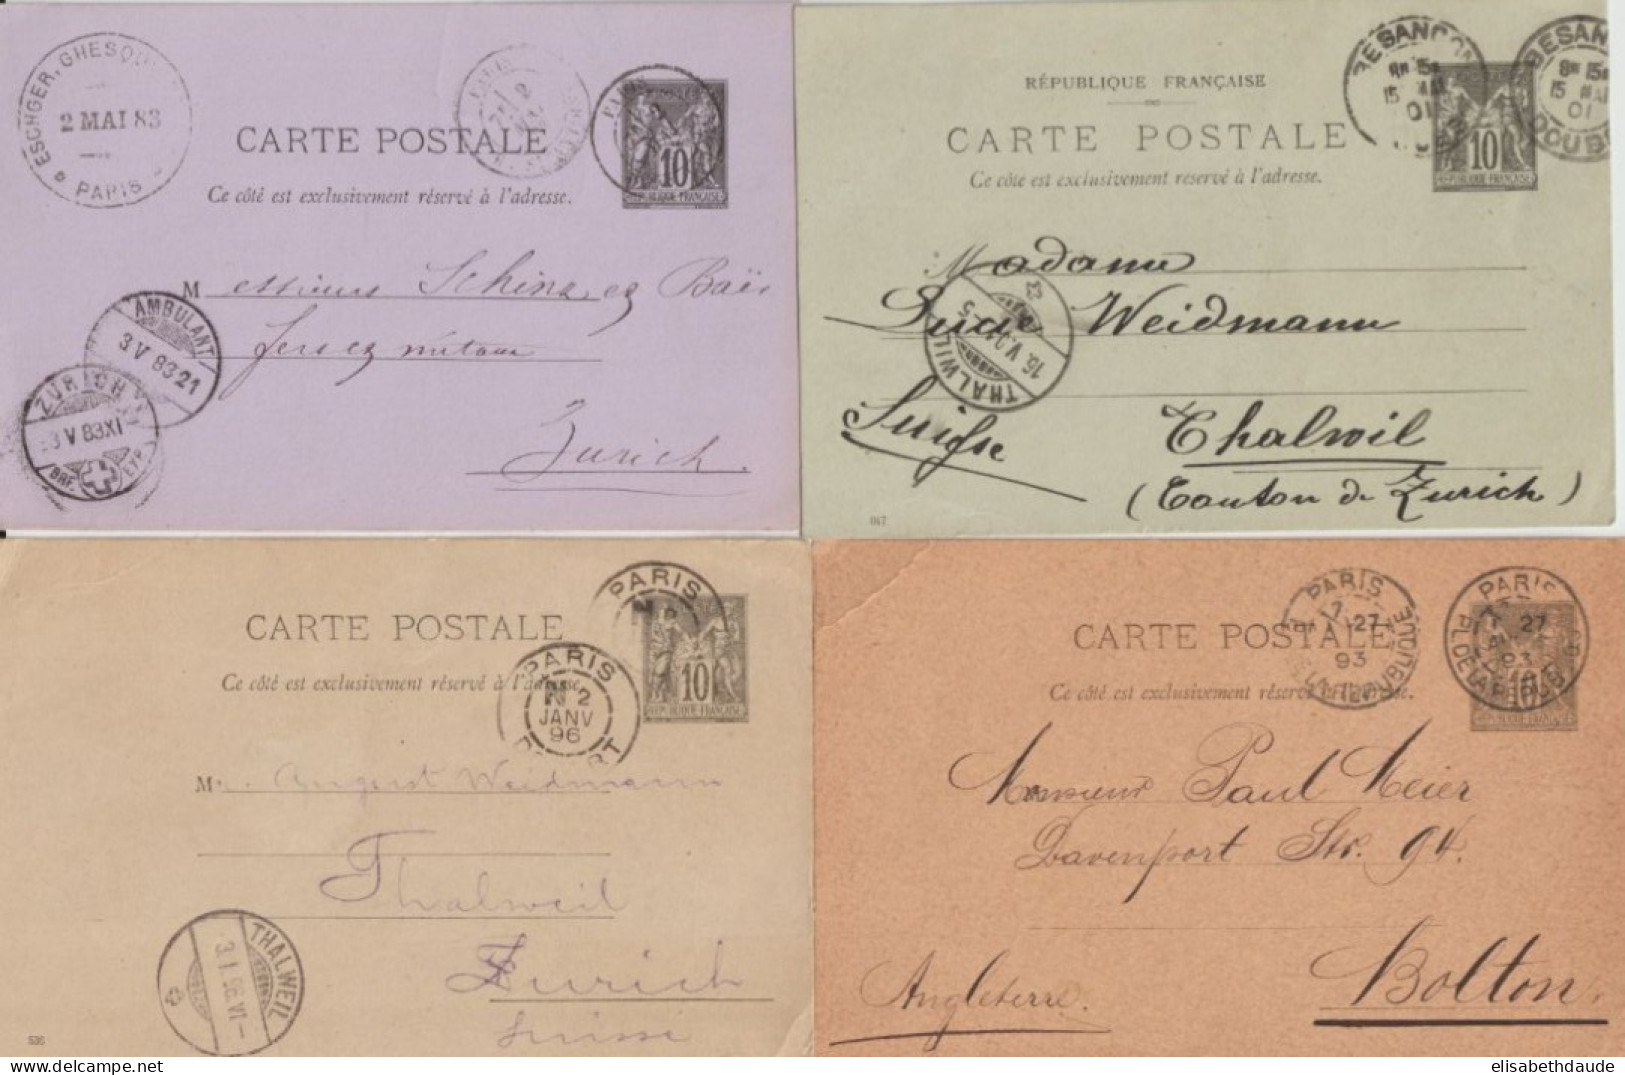 ESCHGER, GHESQU
2 MAI 83
PARIS
CARTE POSTALE
Ce côté est exclusivement réservé à l'adresse.
PARIS
10
RÉPUBLIQUE FRANÇAISE
Messieurs Schinz
Zurich.
AMBULANT
3 V 83 21
ZÜRICH
3 V 83 XI
BRF.
RÉPUBLIQUE FRANÇAISE
CARTE POSTALE
Ce côté est exclusivement réservé à l'adresse.
BESANCON
15 MAI
01
BESAN
8M 15
15 MAI
01
DOUBS
10
RÉPUBLIQUE FRANÇAISE
Madame
Weidmann
Thalwil
Suisse
(Canton de Zurich)
THALWIL
16. V. 01
CARTE POSTALE
Ce côté est exclusivement réservé à l'adresse.
PARIS
PARIS
2
JANV
96
10
RÉPUBLIQUE FRANÇAISE
Mr. August Weidmann
Thalweil
Zurich
Suisse
THALWEIL
3. I. 96. VI
536
CARTE POSTALE
Ce côté est exclusivement réservé à l'adresse.
PARIS
27
93
PL. DE LA RÉPUBLIQUE
PARIS
27
93
PL. DE LA REPUB
10
RÉPUBLIQUE FRANÇAISE
Monsieur Paul Meier
Davenport Str. 94.
Bolton.
Angleterre.
elisabethdaude